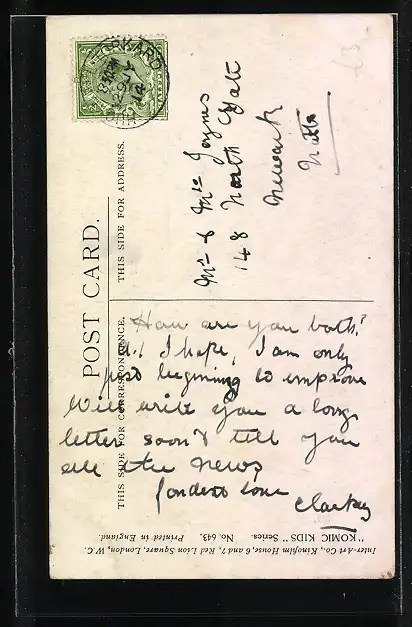 POST CARD.
THIS SIDE FOR CORRESPONDENCE.
THIS SIDE FOR ADDRESS.
Mr & Mrs Jaynes
148 North Gate
Newark
Notts
How are you both?
I hope, I am only
just beginning to improve
Will write you a long
letter soon & tell you
all the news
fondest love
"KOMIC KIDS" Series. No. 643. Printed in England.
Inter-Art Co., Kingsim House, 6 and 7, Red Lion Square, London, W.C.